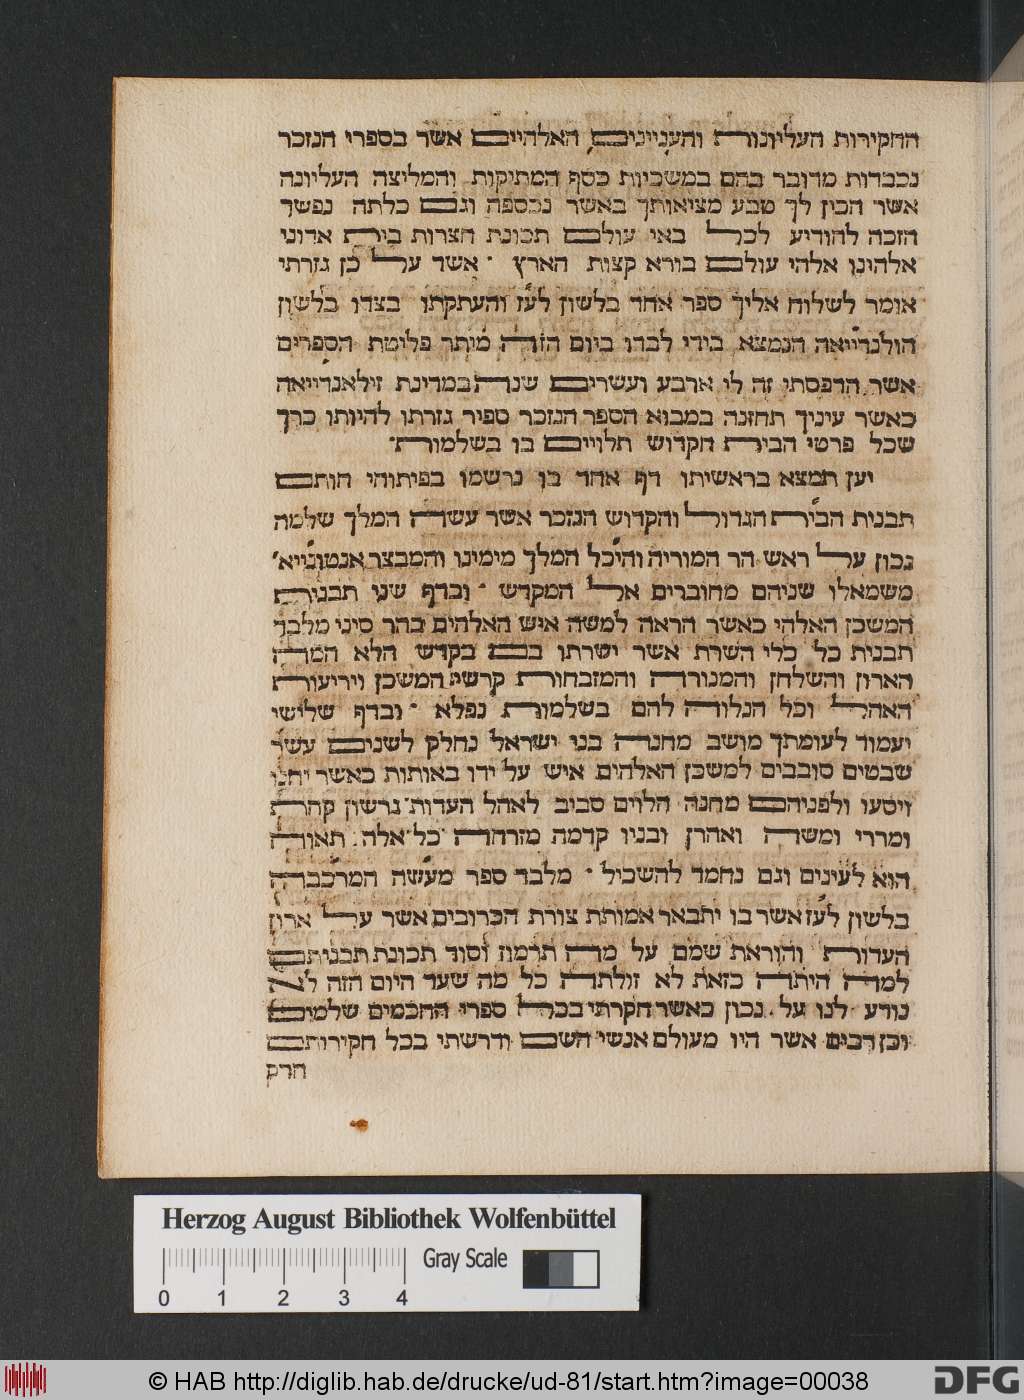 החקירות העליונות והעניינים האלהיים אשר בספרי הנזכר
נכבדות מדובר בהם במשכיות כסף המתיקות והמליצה העליונה
אשר הכין לך טבע מציאותך באשר נכספה וגם כלתה נפשך
הזכה להודיע לכל באי עולם תכונת חצרות בית אדוני
אלהינו אלהי עולם בורא קצות הארץ · אשר על כן גזרתי
אומר לשלוח אליך ספר אחד בלשון לעז והעתקתו בצדו בלשון
הולנדייאה הנמצא בידי לבדו ביום הזה מיתר פליטת הספרים
אשר הדפסתי זה לי ארבע ועשרים שנה במדינת זילאנדייאה
כאשר עיניך תחזנה במבוא הספר הנזכר ספיר גזרתו להיותו כרך
שכל פרטי הבית הקדוש תלויים בו בשלמות·
יען תמצא בראשיתו דף אחד בו נרשמו בפיתוחי חותם
תבנית הבית הגדול והקדוש הנזכר אשר עשה המלך שלמה
נכון על ראש הר המוריה והיכל המלך מימינו והמבצר אנטונייא׳
משמאלו שניהם מחוברים אל המקדש · ובדף שני תבנית
המשכן האלהי כאשר הראה למשה איש האלהים בהר סיני מלבד
תבנית כל כלי השרת אשר ישרתו בם בקדש הלא המה
הארון והשלחן והמנורה והמזבחות קרשי המשכן ויריעות
האהל וכל הנלוה להם בשלמות נפלא · ובדף שלישי
יעמוד לעומתך מושב מחנה בני ישראל נחלק לשנים עשר
שבטים סובבים למשכן האלהים איש על ידו באותות כאשר יחנו
ויסעו ולפניהם מחנה הלוים סביב לאהל העדות גרשון קהת
ומררי ומשה ואהרן ובניו קדמה מזרחה כל אלה תאוה
הוא לעינים וגם נחמד להשכיל · מלבד ספר מעשה המרכבה
בלשון לעז אשר בו יתבאר אמותת צורת הכרובים אשר על ארון
העדות והוראת שמם על מה תרמוז וסוד תכונת תבניתם
למה היתה כזאת לא זולתה כל מה שעד היום הזה לא
נודע לנו על נכון כאשר חקרתי בכל ספרי החכמים שלמים
וכן רבים אשר היו מעולם אנשי השם ודרשתי בכל חקירותם
חדק
Herzog August Bibliothek Wolfenbüttel
Gray Scale
0 1 2 3 4
© HAB http://diglib.hab.de/drucke/ud-81/start.htm?image=00038
DFG